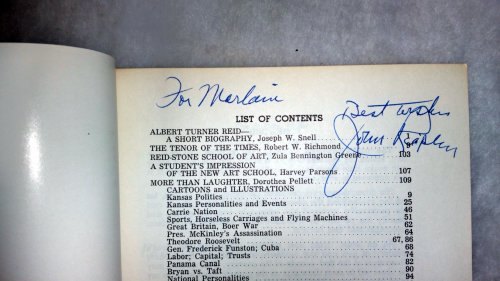 For Marlain
Best wishes
John
LIST OF CONTENTS
ALBERT TURNER REID—
A SHORT BIOGRAPHY, Joseph W. Snell 1
THE TENOR OF THE TIMES, Robert W. Richmond
REID-STONE SCHOOL OF ART, Zula Bennington Greene 103
A STUDENT'S IMPRESSION
OF THE NEW ART SCHOOL, Harvey Parsons 107
MORE THAN LAUGHTER, Dorothea Pellett 109
CARTOONS and ILLUSTRATIONS
Kansas Politics 9
Kansas Personalities and Events 25
Carrie Nation 46
Sports, Horseless Carriages and Flying Machines 51
Great Britain, Boer War 62
Pres. McKinley's Assassination 64
Theodore Roosevelt 67, 86
Gen. Frederick Funston; Cuba 68
Labor; Capital; Trusts 74
Panama Canal 82
Bryan vs. Taft 90
National Personalities 94